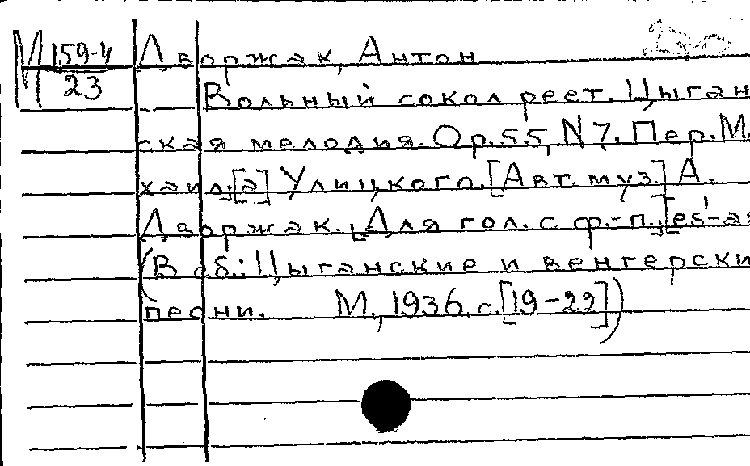 М 159-4 Дворжак, Антон
23 Вольный сокол реет. Цыган
ская мелодия. Op. 55, N 7. Пер. М.
хаил.[а] Улицкого. [Авт. муз.] А.
Дворжак. [Для гол. с ф.-п.] [es¹-as
(В сб.: Цыганские и венгерски
песни. М., 1936. с. [19-22])